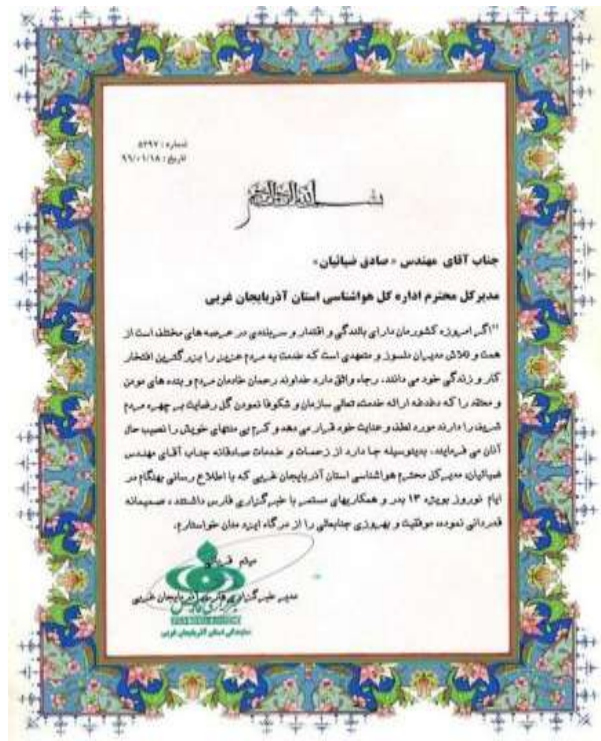 شماره : ۵۲۹۷
تاریخ : ۹۶/۰۱/۱۸
بسم الله الرحمن الرحیم
جناب آقای مهندس « صادق ضیائیان»
مدیرکل محترم اداره کل هواشناسی استان آذربایجان غربی
"اگر امروزه کشورمان دارای بالندگی و اقتدار و سربلندی در عرصه های مختلف است از
همت و تلاش مدیران دلسوز و متعهدی است که خدمت به مردم عزیز را بزرگترین افتخار
کار و زندگی خود می دانند، رجاء واثق دارد خداوند رحمان خادمان مردم و بنده های مومن
و معتقد را که دغدغه ارائه خدمت، تعالی سازمان و شکوفا نمودن گل رضایت بر چهره مردم
شریف را دارند مورد لطف و عنایت خود قرار می دهد و کرم بی منتهای خویش را نصیب حال
آنان می فرمایند، بدینوسیله جا دارد از زحمات و خدمات صادقانه جناب آقای مهندس
ضیائیان، مدیرکل محترم هواشناسی استان آذربایجان غربی که با اطلاع رسانی بهنگام در
ایام نوروز بویژه ۱۳ بدر و همکاریهای مستمر با خبرگزاری فارس داشتند ، صمیمانه
قدردانی نموده، موفقیت و بهروزی جنابعالی را از درگاه ایزد منان خواستارم.
میثم
مدیر خبرگزاری فارس آذربایجان غربی
خبرگزاری فارس
FARS NEWS AGENCY
نمایندگی استان آذربایجان غربی